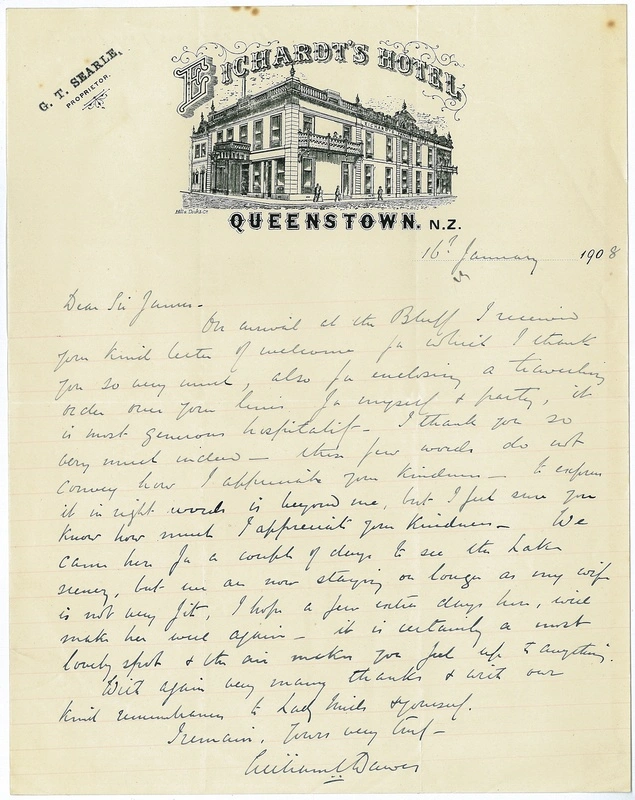 G. T. SEARLE,
PROPRIETOR.
EICHARDT'S HOTEL
QUEENSTOWN. N.Z.
16th January 1908
Dear Sir James -
On arrival at the Bluff I received
your kind letter of welcome for which I thank
you so very much, also for enclosing a travelling
order over your lines for myself & party, it
is most generous hospitality - I thank you so
very much indeed - these few words do not
convey how I appreciate your kindness - to express
it in right words is beyond me, but I feel sure you
know how much I appreciate your kindness - We
came here for a couple of days to see the Lake
scenery, but we are now staying on longer as my wife
is not very fit, I hope a few extra days here, will
make her well again - it is certainly a most
lovely spot & the air makes you feel up to anything.
With again very many thanks & with our
kind remembrances to Lady Mills & yourself.
I remain, Yours very truly -
William Dawes